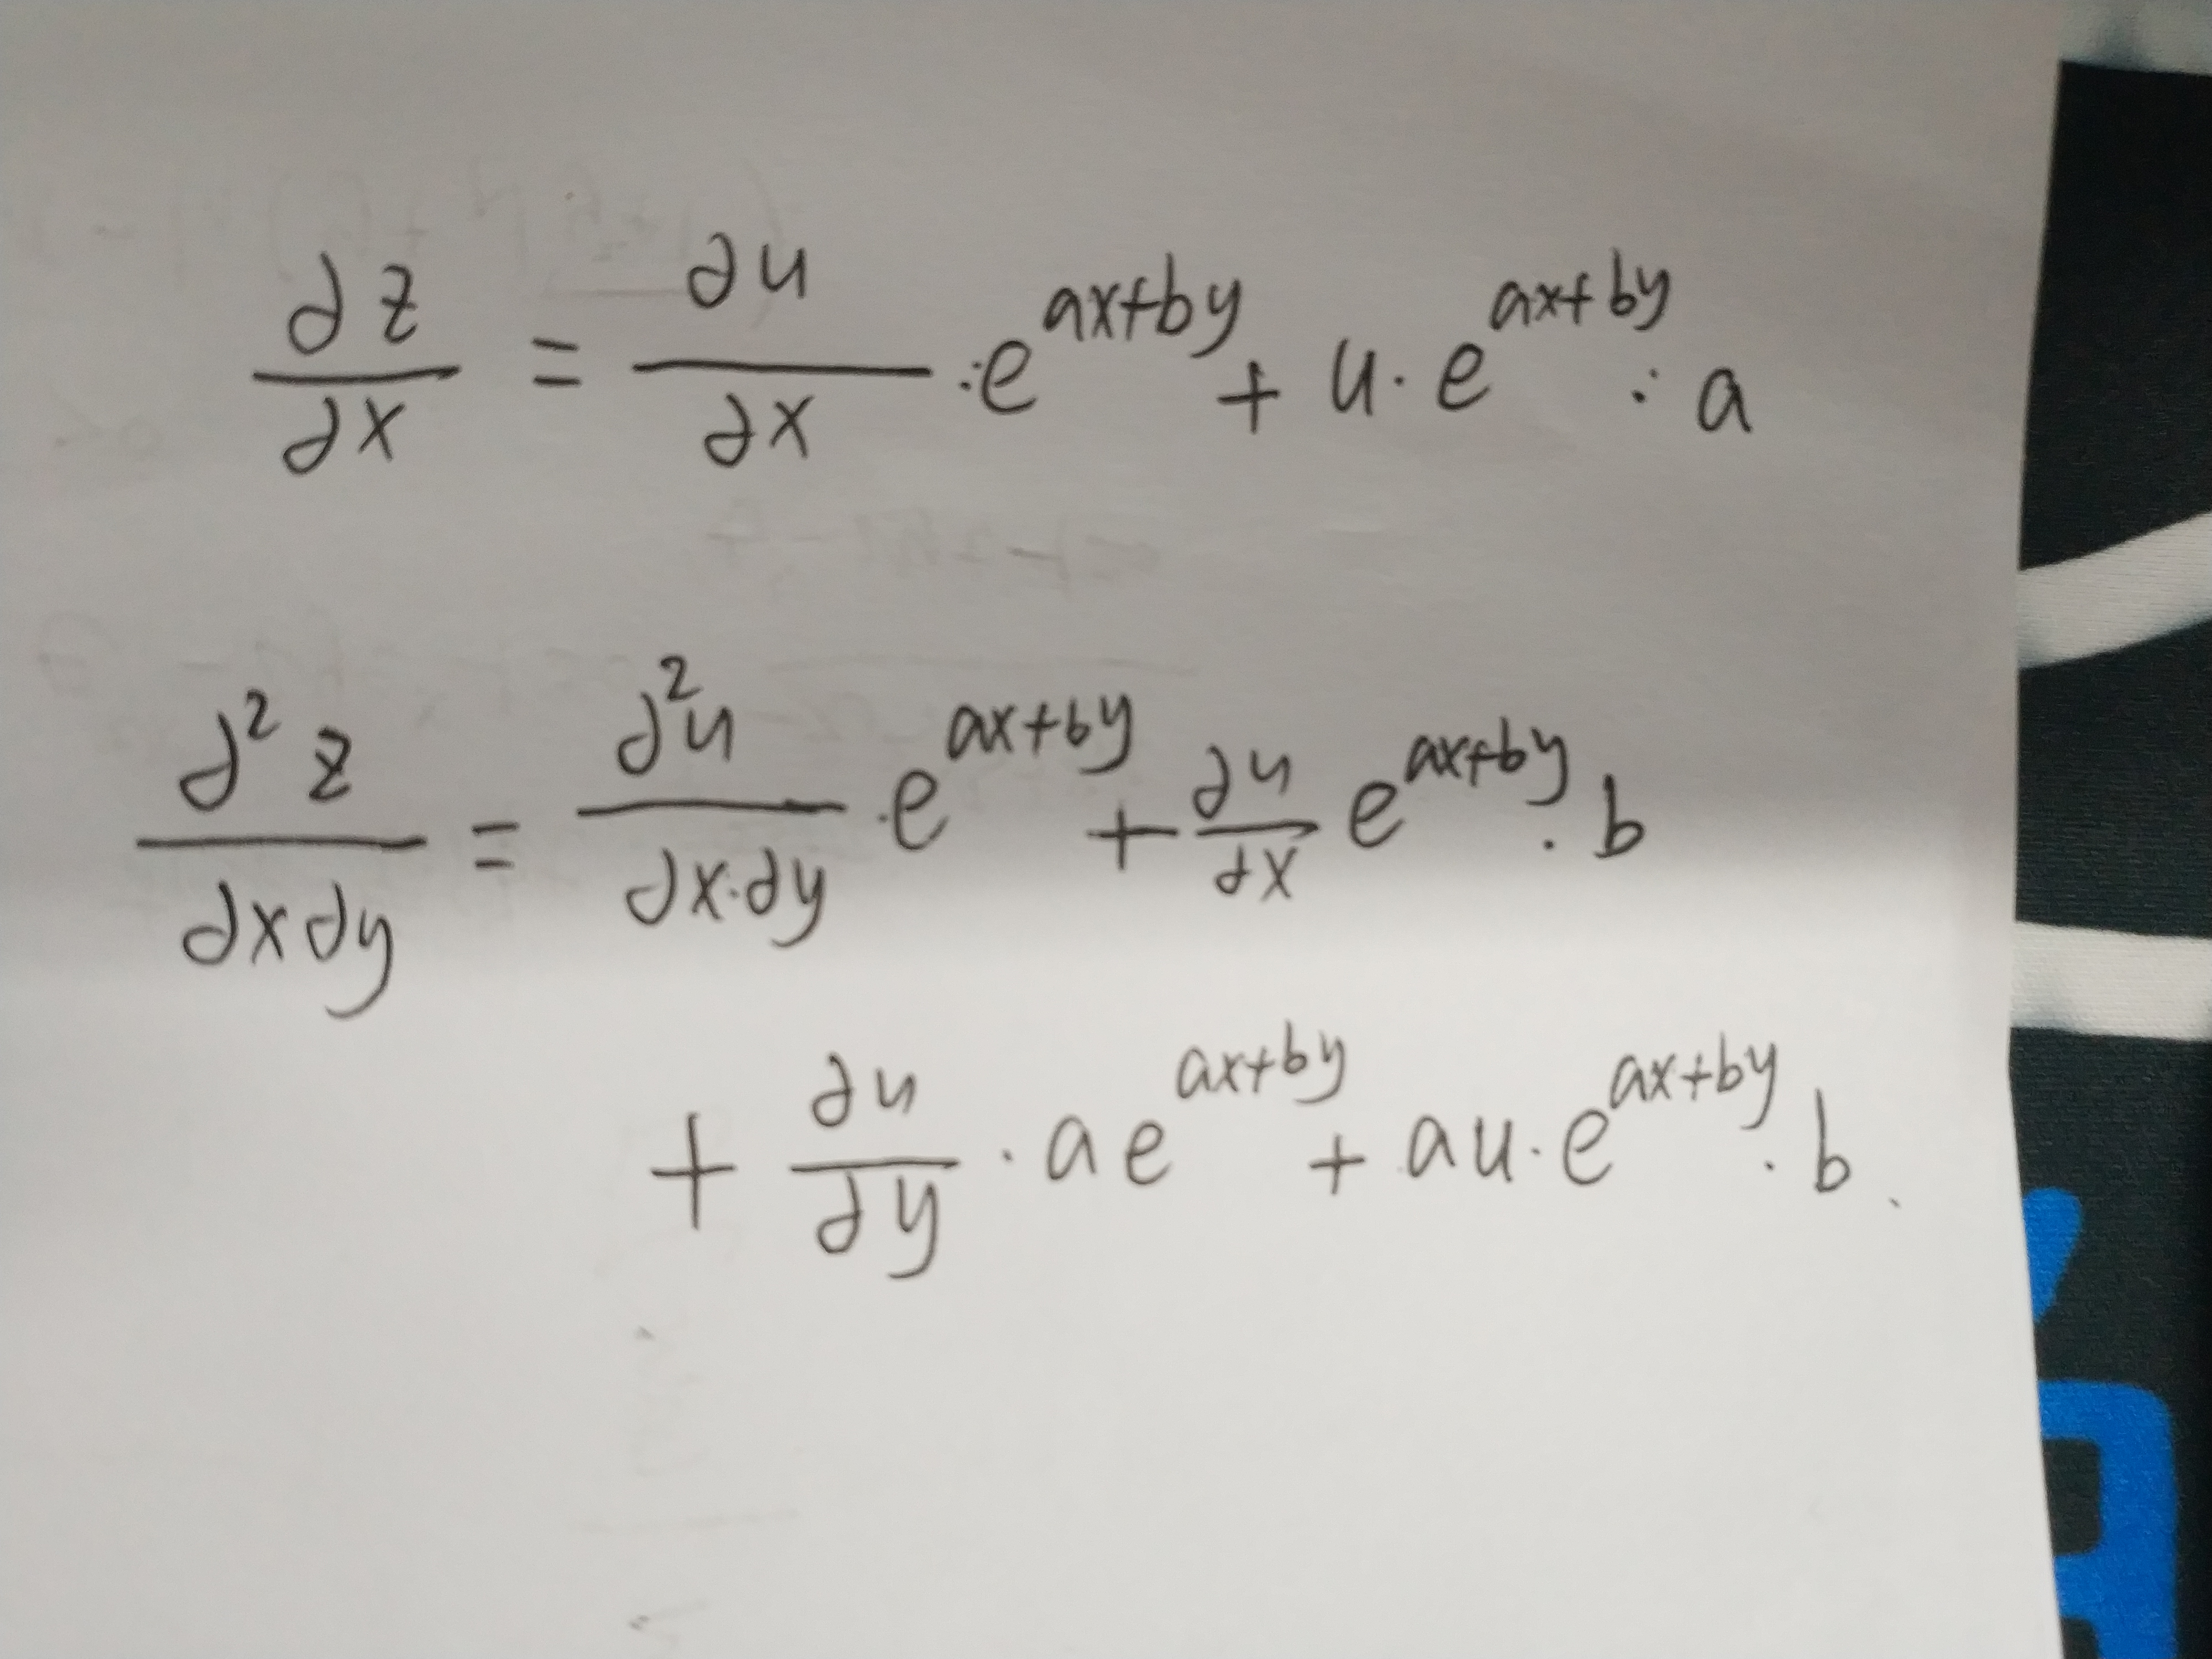 ∂z/∂x = ∂u/∂x ·e^{ax+by} + u·e^{ax+by}·a
∂²z/∂x∂y = ∂²u/∂x·∂y ·e^{ax+by} + ∂u/∂x e^{ax+by}·b
+ ∂u/∂y · ae^{ax+by} + au·e^{ax+by}·b.